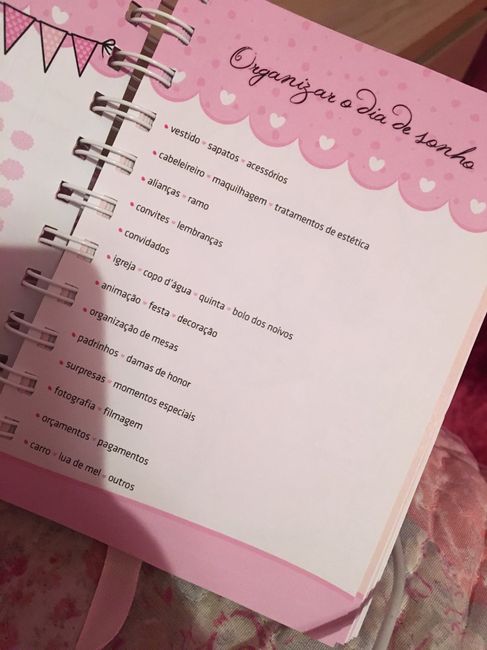 Organizar o dia de sonho
• vestido ♥ sapatos ♥ acessórios
• cabeleireiro ♥ maquilhagem ♥ tratamentos de estética
• alianças ♥ ramo
• convites ♥ lembranças
• convidados
• igreja ♥ copo d'água ♥ quinta ♥ bolo dos noivos
• animação ♥ festa ♥ decoração
• organização de mesas
• padrinhos ♥ damas de honor
• surpresas ♥ momentos especiais
• fotografia ♥ filmagem
• orçamentos ♥ pagamentos
• carro ♥ lua de mel ♥ outros